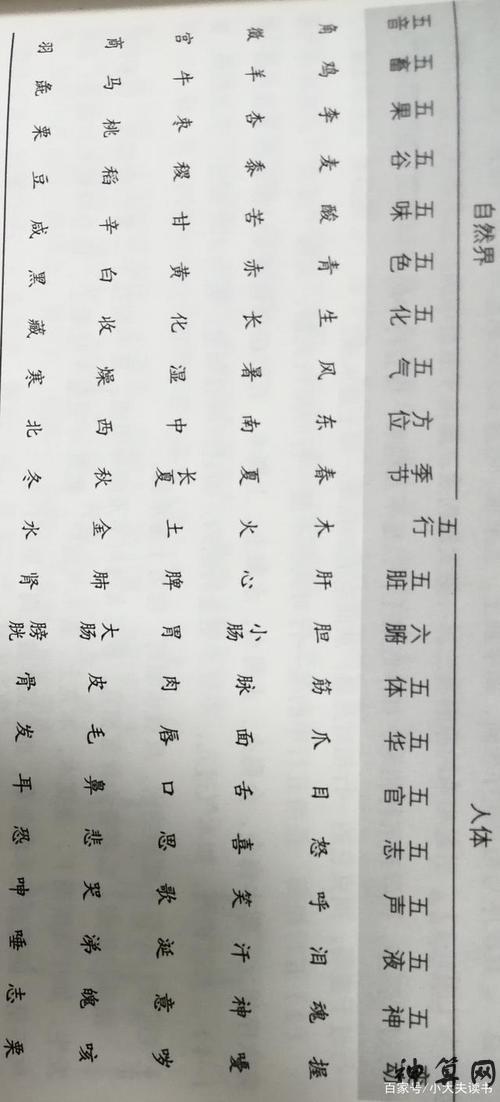 自然界 五行 人体
五音 五畜 五果 五谷 五味 五色 五化 五气 方位 季节 五脏 六腑 五体 五华 五官 五志 五声 五液 五神 动
角 鸡 李 麦 酸 青 生 风 东 春 木 肝 胆 筋 爪 目 怒 呼 泪 魂 握
徵 羊 杏 黍 苦 赤 长 暑 南 夏 火 心 小肠 脉 面 舌 喜 笑 汗 神
宫 牛 枣 稷 甘 黄 化 湿 中 长夏 土 脾 胃 肉 唇 口 思 歌 涎 意 哕
商 马 桃 稻 辛 白 收 燥 西 秋 金 肺 大肠 皮 毛 鼻 悲 哭 涕 魄 咳
羽 彘 栗 豆 咸 黑 藏 寒 北 冬 水 肾 膀胱 骨 发 耳 恐 呻 唾 志 栗
神算网
百家号/小大夫读书